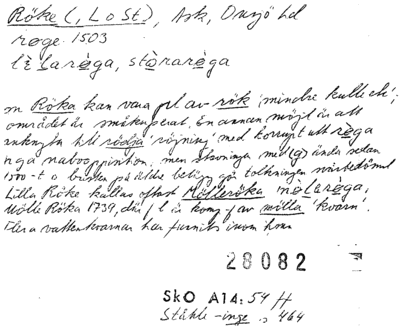 Röke (, L o St), Ask, Onsjö hd
røge 1503
lìlarøga, stòrarøga
on Röka kan vara pl av rök 'mindre kulle ck';
området är småkuperat. En annan möjl är att
anknyta till rödja 'röjning' med korrupt utt røga
nga naboopinion, men skrivningar med (g) ända sedan
1500-t o bristen på äldre belägg gör tolkningen
Lilla Röke kallas oftast Mölleröka mölarøga,
Mölle Röka 1739, där f l är komp f av mölla 'kvarn'.
Flera vattenkvarnar har funnits inom
28082
SkO A14: 54 H
Ståhle -inge s 464